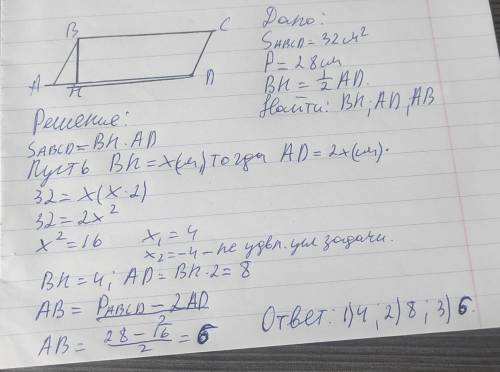 B
C
A
H
D
Дано:
SABCD = 32 см²
P = 28 см
BH = 1/2 AD.
Найти: BH; AD; AB
Решение:
SABCD = BH · AD
Пусть BH = x(см), тогда AD = 2x(см).
32 = x(x·2)
32 = 2x²
x² = 16
x₁ = 4
x₂ = -4 – не удвл. усл задачи.
BH = 4; AD = BH·2 = 8
AB = (PABCD – 2AD)/2
AB = (28 – 16)/2 = 6
Ответ: 1) 4; 2) 8; 3) 6.